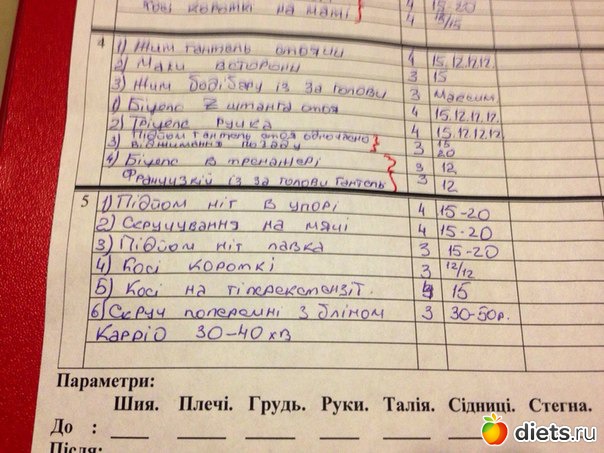 косі короткі на мячі 4 15-20
4 15/15
4 1) Жим гантель стоячи 4 15.12.12.12.
2) Махи в сторони 3 15
3) Жим бодібару із за голови 3 максим.
1) Біцепс Z штанга стоя 4 15.12.12.12.
2) Тріцепс ручка 4 15.12.12.12.
3) Підйом гантель стоя одночасно 3 15
віджимання позаду 3 20
4) Біцепс в тренажері 3 12
Французкій із за голови гантель 3 12
5 1) Підйом ніг в упорі 4 15-20
2) Скручування на мячі 4 15-20
3) Підйом ніг лавка 3 15-20
4) Косі короткі 3 12/12
5) Косі на гіперекстензії. 15
6) Скруч поперемні з бліном 3 30-50р.
Кардіо 30-40 хв
Параметри:
Шия. Плечі. Грудь. Руки. Талія. Сідниці. Стегна.
До :
Після:
diets.ru